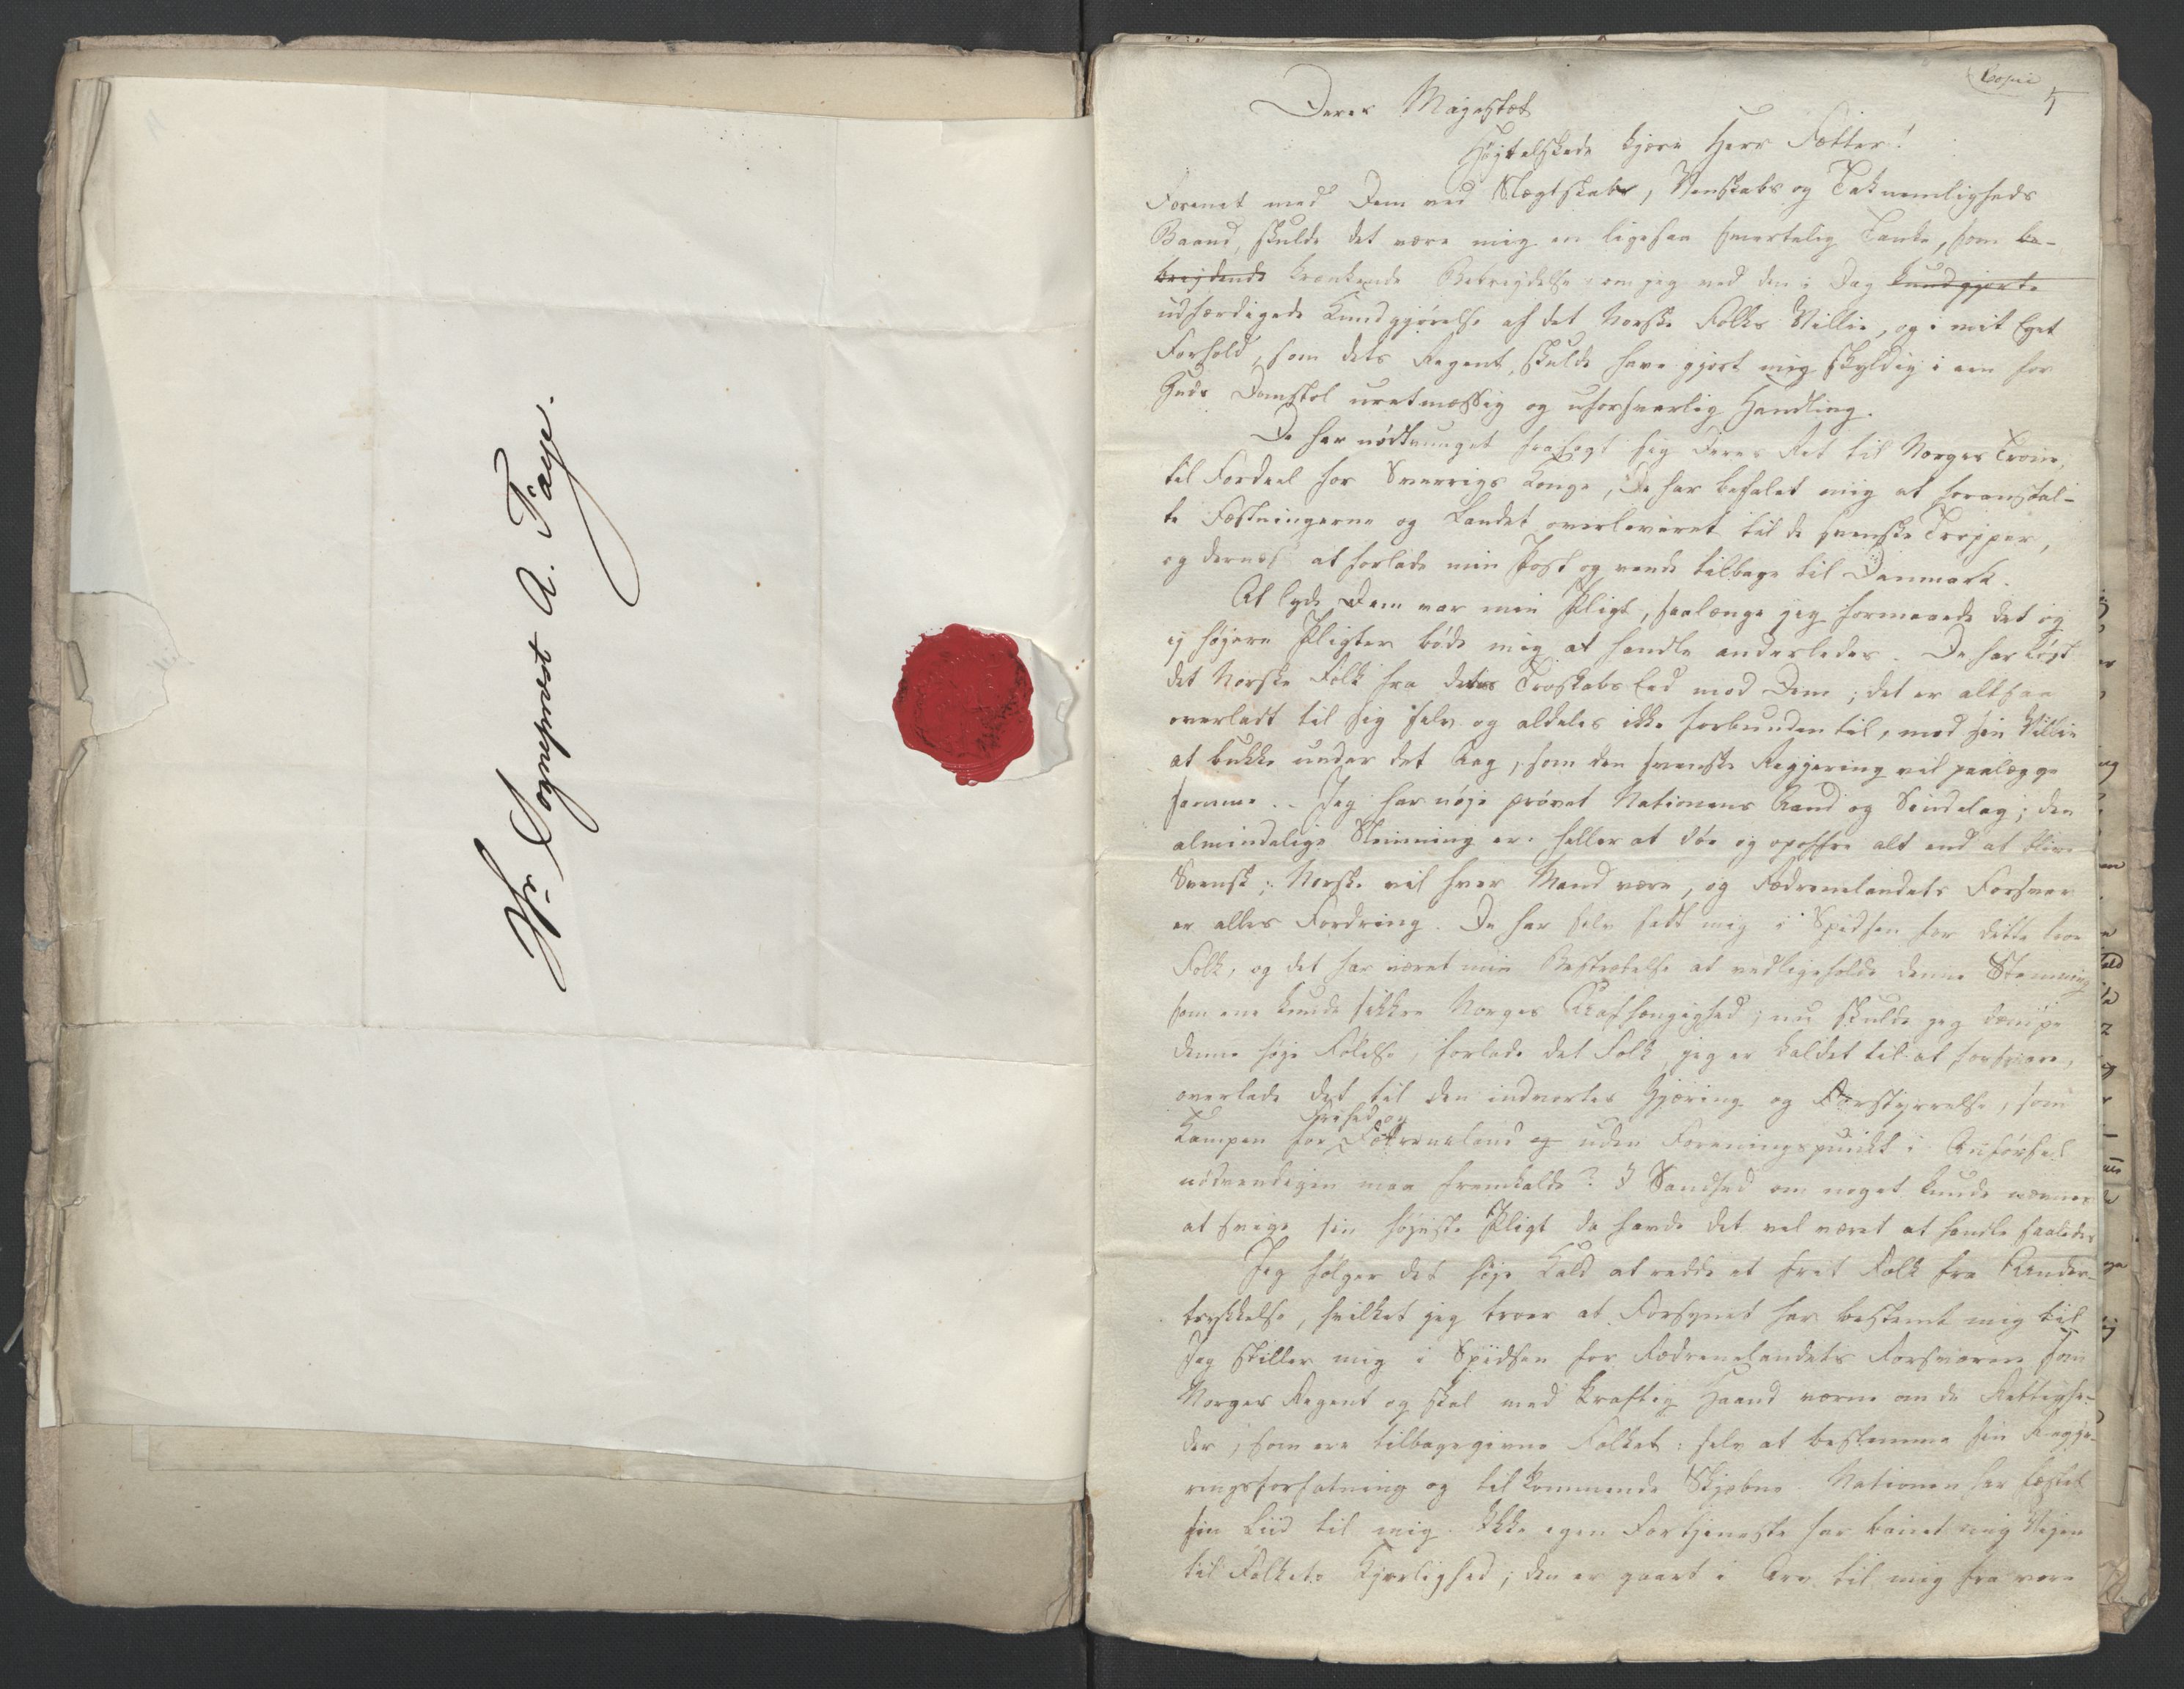 Hr. Sogneprest A. Faye.
Copie
5
Deres Mayestæt
Høytelskede kjære Herr Fætter!
Forenet med Dem ved Slægtskabs, Venskabs og Taknemligheds
Baand, skulde det være mig en ligesaa smertelig Tanke, som be-
breydende krænkende Bebreydelse om jeg ved den i Dag kundgjorte
udfærdigede Kundgjørelse af det Norske Folks Villie, og i mit Eget
Forhold, som dets Regent, skulde have gjort mig skyldig i een for
Guds Domstol uretmæssig og uforsvarlig Handling.
De har nødtvunget frasagt sig Deres Ret til Norges Trone,
til Fordeel for Sverrigs Konge, De har befalet mig at foranstal-
te Fæstningerne og Landet overleveret til de svenske Tropper,
og dernæst at forlade min Post og vende tilbage til Danmark.
At lyde Dem var min Pligt, saalænge jeg formaaede det og
ej høyere Pligter bøde mig at handle anderledes. De har løst
det Norske Folk fra dets Troskabs Eed mod Dem; det er altsaa
overladt til sig selv og aldeles ikke forbunden til, mod sin Villie
at bukke under det Aag, som den svenske Regjering vil paalægge
samme. Jeg har nøje prøvet Nationens Aand og Sindelag; den
almindelige Stemning er: heller at døe og opoffre alt end at blive
Svensk; Norsk vil hver Mand være, og Fædrenelandets Forsvar
er alles Fordring. De har selv sadt mig i Spidsen for dette brave
Folk, og det har været min Bestræbelse at vedligeholde denne Stemning
som ene kunde sikkre Norges Uafhængighed; nu skulde jeg dæmpe
denne høje Følelse, forlade det Folk, jeg er kaldet til at forsvare,
overlade det til den indvortes Gjæring og Forstyrrelse, som
Kampen for Friehed og Fædreneland og uden Foreningspunkt i Anførsel
nødvendigen maa fremkalde? I Sandhed om noget kunde nævnes
at svige sin høyeste Pligt da havde det vel været at handle saaledes
Jeg følger det høje Kald at redde et friet Folk fra Under-
trykkelse, hvilket jeg troer at Forsynet har bestemt mig til
Jeg stiller mig i Spidsen for Fædrenelandets Forsvarere som
Norges Regent og skal med kraftig Haand værne om de Rettighe-
der, som ere tilbagegivne Folket: selv at bestemme sin Regje-
ringsforfatning og tilkommende Skjæbne. Nationen har fæstet
sin Liid til mig. Ikke egen Fortjeneste har banet mig Vejen
til Folkets Kjærlighed; den er gaaet i Arv til mig fra vore